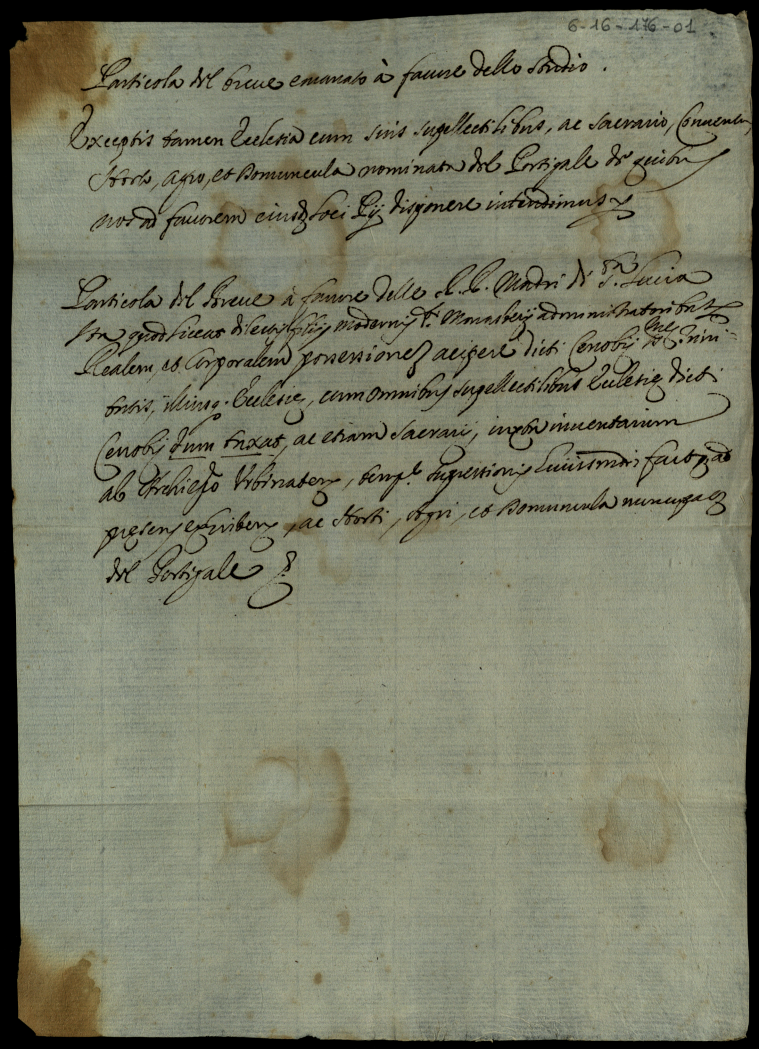 6-16-176-01
Particola del breue emanato à fauore dello Studio.
Exceptis tamen Ecclesia cum suis supellectilibus, ac Sacrario, Conuentu,
Horto, Agro, et Domuncula nominata del Portigale de quibus
nos ad fauorem eiusd. Loci Pij disponere intendimus
Particola del Breue à fauore delle R. R. Madri di S.ta Lucia
Ita quod liceat dilectis filijs modernis d.i Monasterij administratoribus
Realem, et Corporalem possessionem accipere dicti Cenobij SS.me Trini-
tatis, illiusq. Ecclesię, cum omnibus supellectilibus Ecclesię dicti
Cenobij dum taxat, ac etiam Sacrarij, iuxta inuentarium
ab Archiepo Vrbinaten, temp.e suppressionis huiusmodi fact. et ad
pręsens existens, ac Horti, Agri, et Domuncula nuncupa
del Portigale